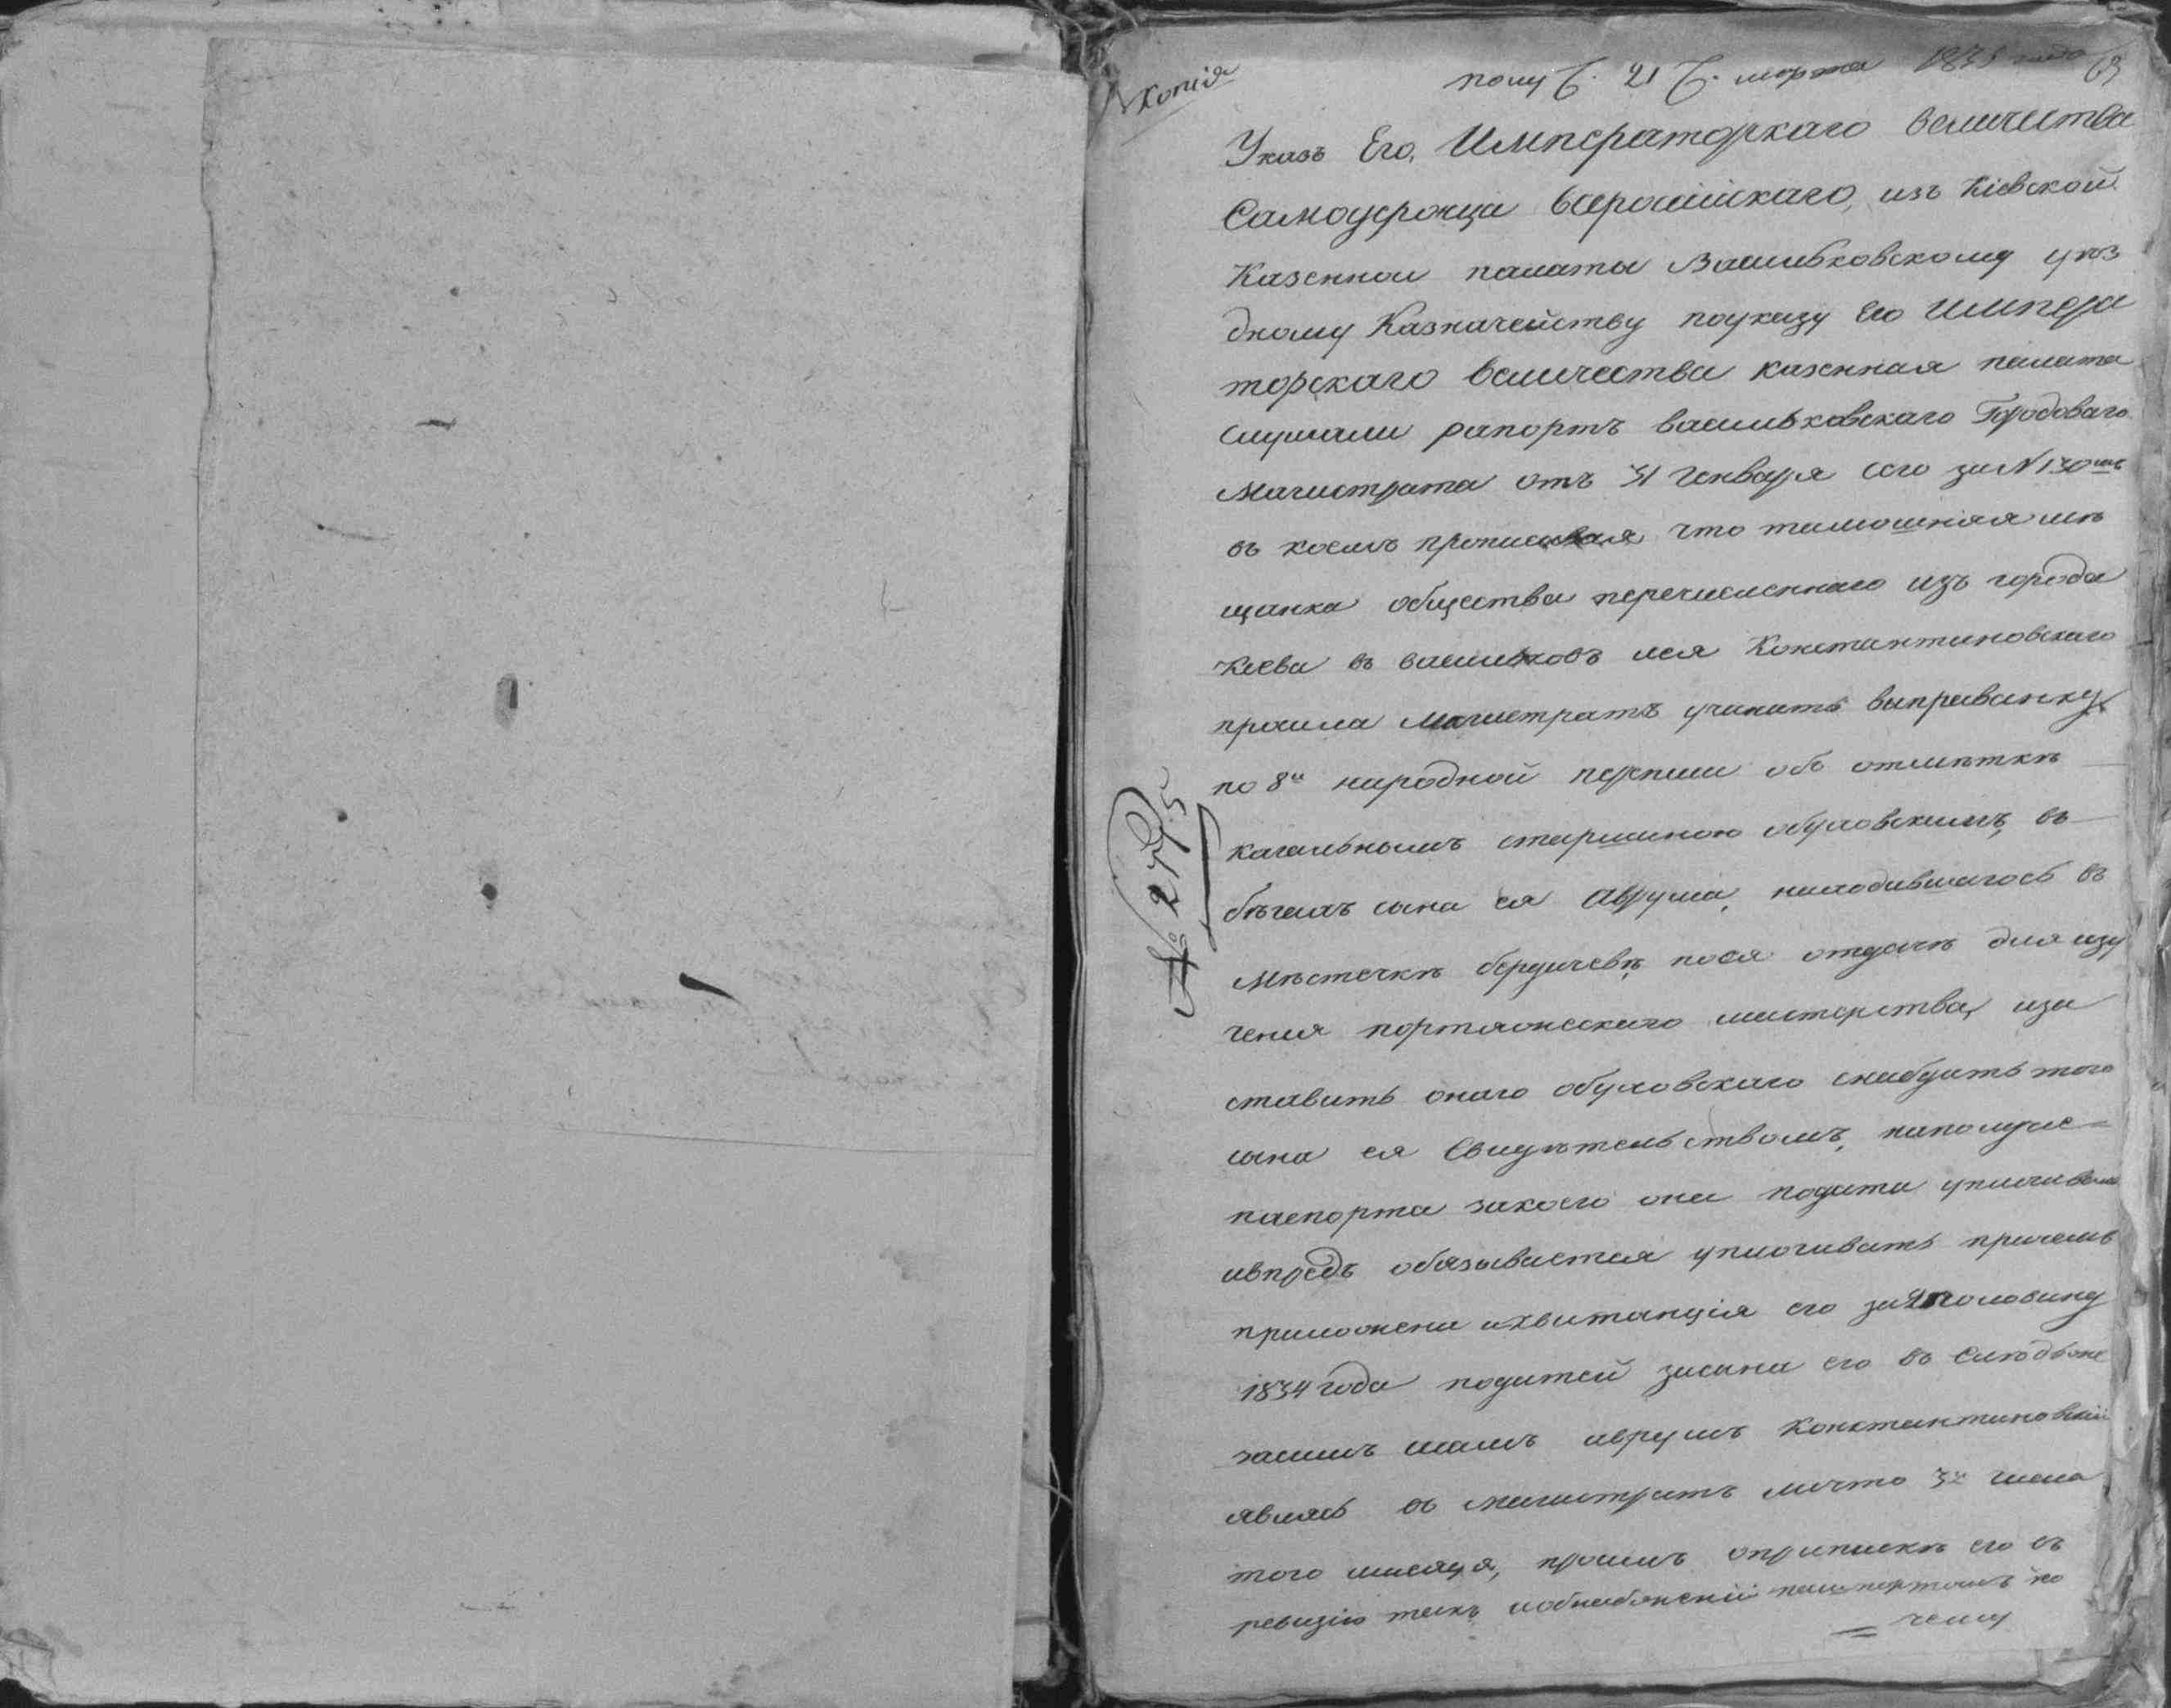 Копія
полу Ч. 21 Ч. марта 1835 года
63
Указъ Его Императорскаго величества
Самодержца всеросійскаго, изъ Кіевской
Казенной палаты Васильковскому уѣз
дному Казначейству поуказу Его Импера
торскаго величества казенная палата
слушали рапортъ васильковскаго Городоваго
Магистрата отъ 31 Генваря сего за N 130мъ
въ коемъ прописывая что тамошняя мѣ
щанка общества перечисленнаго изъ города
Кіева въ васильковъ Константиновскаго
просила магистратъ учинить выправанку
по 8й народной переписи объ отмѣткѣ
кагальнымъ старшиною обуховскимъ, въ
бѣгахъ сына ея Аврума, находившагось въ
Мѣстечкѣ бердичевѣ, посля отдачѣ для изу
ченія портняжескаго мастерства, иза
ставить онаго обуховскаго снабдить того
сына ея Свидѣтельствомъ, наполуче=
паспорта закоего она подати уплачивала
ивпредь обязывается уплачивать причемъ
приложена иквитанція его за половину
1834 года податей засына его въ Слѣдъже
засимъ самъ аврумъ Константиновскій
являсь въ магистратъ 3го числа
того мѣсяца, просилъ оприпискѣ его въ
ревизію такъ иобнабженіи пашпортомъ по
= чему
№ 2775